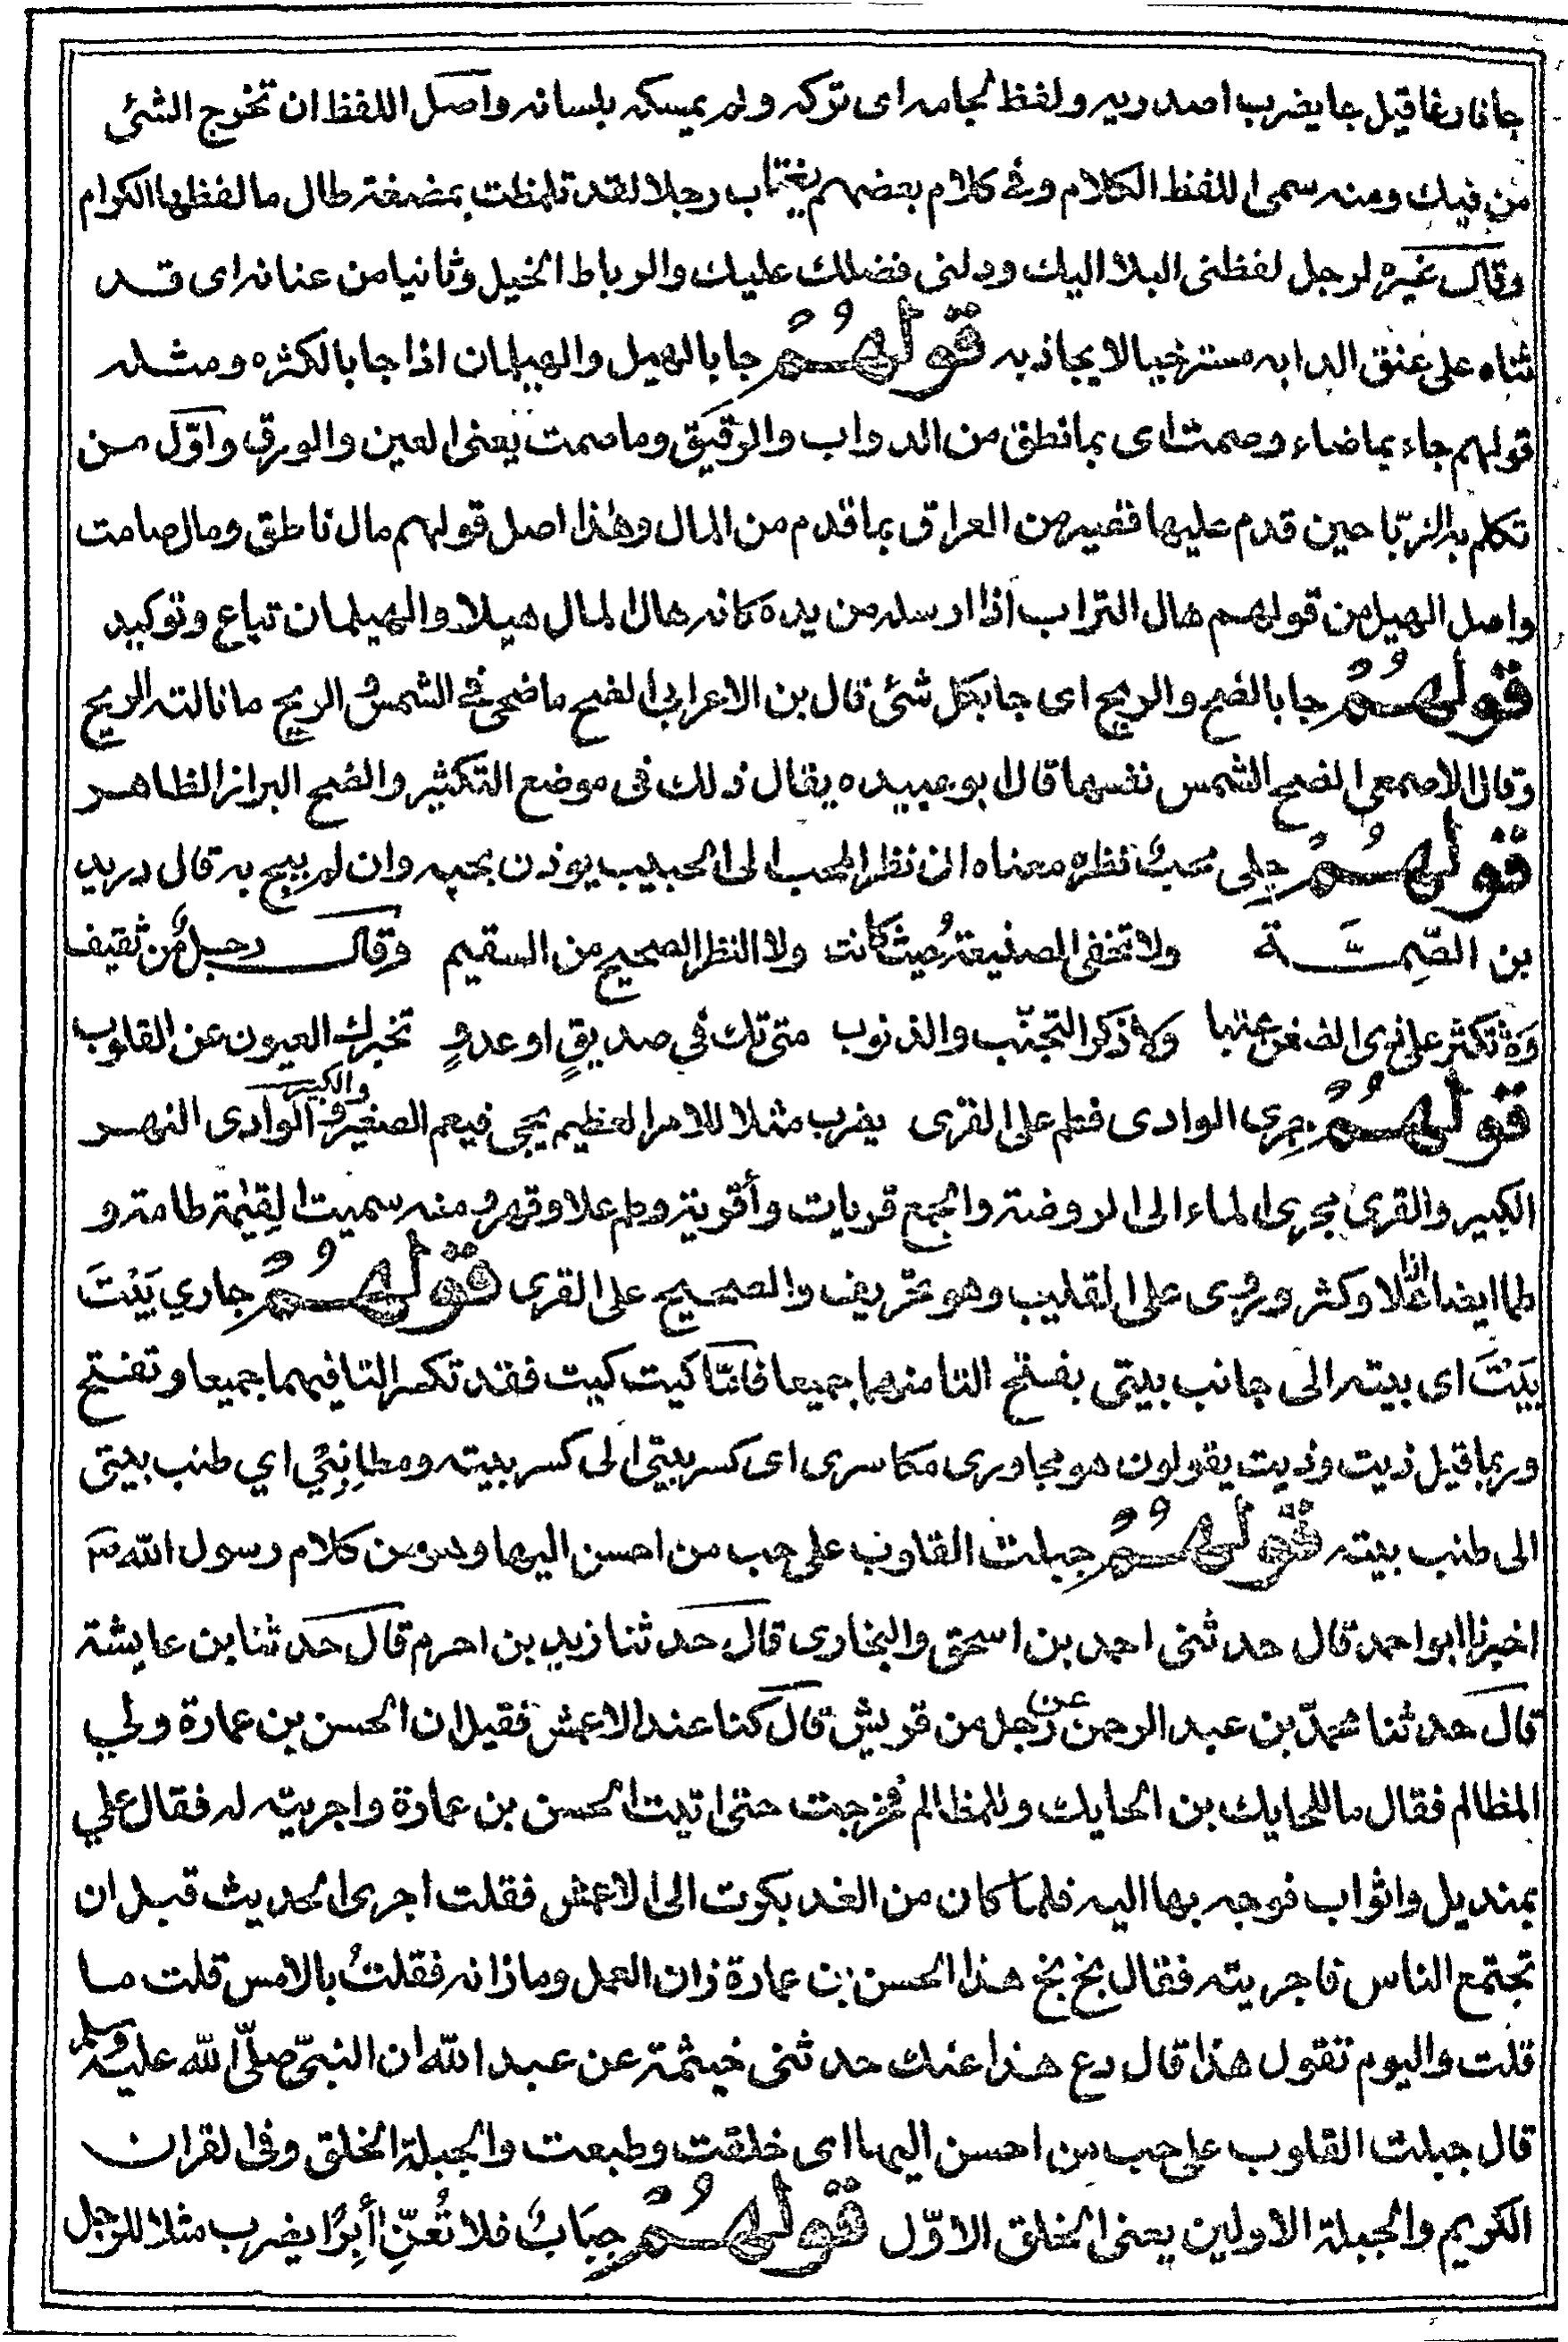 جا فارغا قيل جا يضرب اصدريه ولفظ لجامه اى تركه ولم يمسكه بلسانه واصل اللفظ ان تخرج الشئ
من فيك ومنه سمى اللفظ الكلام وفى كلام بعضهم يغتاب رجلا لقد تلمظت بمضغة طال ما لفظها الكرام
وقال غيره لرجل لفظنى البلا اليك ودلنى فضلك عليك والرباط الخيل وثانيا من عنانه اى قد
ثناه على عنق الدابه مسترخيا لا يجاذبه قولهُم جا بالهيل والهيلمان اذا جا بالكثره ومثله
قولهم جاء بما ضاء وصمت اى بما نطق من الدواب والرقيق وما صمت يعنى العين والورق واوّل من
تكلم به الزبّا حين قدم عليها قصير من العراق بما قدم من المال وهذا اصل قولهم مال ناطق ومال صامت
واصل الهيل من قولهم هال التراب اذا ارسله من يده كانه هال المال هيلا والهيلمان تباع وتوكيد
قولهُم جا بالضح والريح اى جا بكل شئ قال بن الاعرابى الضح ما ضحى فى الشمس والريح ما نالته الريح
وقال الاصمعى الضح الشمس نفسها قال ابو عبيده يقال ذلك فى موضع التكثير والضح البراز الظاهر
قولهُم جلى محبٌ نظره معناه ان نظر المحب الى الحبيب يوذن بحبه وان لم يبح به قال دريد
بن الصِّمَّة ولا تخفى الصنيعة حيث كانت ولا النظر الصحيح من السقيم وقال رجل من ثقيف
ولا تكثر على ذى الضغن عتبا ولا ذكر التجنّب والذنوب متى تك فى صديقٍ او عدوٍ تخبرك العيون عن القلوب
قولهُم جرى الوادى فطم على القرى يضرب مثلا للامر العظيم يجى فيعم الصغير والكبير والوادى النهر
الكبير والقرى مجرى الماء الى الروضة والجمع قريات وأقرية وطم علا وقهر ومنه سميت القِيٰمة طامة و
طما ايضا اذا علا وكثر وروى على القليب وهو تحريف والصحيح على القرى قولهُم جاري بَيْتَ
بَيْتَ اى بيته الى جانب بيتى بفتح التا منهما جميعا فامّا كيت كيت فقد تكسر التا فيهما جميعا وتفتح
وربما قيل ذيت وذيت يقولون هو مجاورى مكاسرى اى كسر بيتى الى كسر بيته ومطانِبِي اي طنب بيتى
الى طنب بيته قولهُم جبلت القلوب على حب من احسن اليها وهو من كلام رسول الله صم
اخبرنا ابو احمد قال حدثنى احمد بن اسحق والبخارى قال حدثنا زيد بن احرم قال حدثنا بن عايشة
قال حدثنا محمدّ بن عبد الرحمن عن رجل من قريش قال كنا عند الاعمش فقيل ان الحسن بن عمارة ولي
المظالم فقال ما للحايك بن الحايك وللمظالم فخرجت حتى اتيت الحسن بن عمارة واجريته له فقال علي
بمنديل واثواب فوجه بها اليه فلما كان من الغد بكرت الى الاعمش فقلت اجرى الحديث قبل ان
تجتمع الناس فاجريته فقال بخ بخ هذا الحسن بن عمارة زان العمل وما زانه فقلتُ بالامس قلت ما
قلت واليوم تقول هذا قال دع هذا عنك حدثنى خيثمة عن عبد الله ان النبىّ صلّى الله عليه وسلم
قال جبلت القلوب على حب من احسن اليها اى خلقت وطبعت والجبلة الخلق وفى القران
الكريم والجبلة الاولين يعنى الخلق الاوّل قولهُم جبَابٌ فلا تُعَنِّ أَبرًا يضرب مثلا للرجل